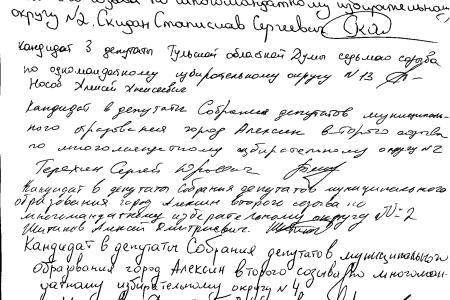 созыва по многомандатному избирательному
округу №2. Скидан Станислав Сергеевич
Кандидат в депутаты Тульской областной Думы седьмого созыва
по одномандатному избирательному округу №13
Носов Алексей Алексеевич
Кандидат в депутаты Собрания депутатов муниципаль-
ного образования город Алексин второго созыва
по многомандатному избирательному округу №2
Терехин Сергей Юрьевич
Кандидат в депутаты Собрания депутатов муниципального
образования город Алексин второго созыва по
многомандатному избирательному округу №2
Алексей Дмитриевич
Кандидат в депутаты Собрания депутатов муниципального
образования город Алексин второго созыва по многоман-
датному избирательному округу №4